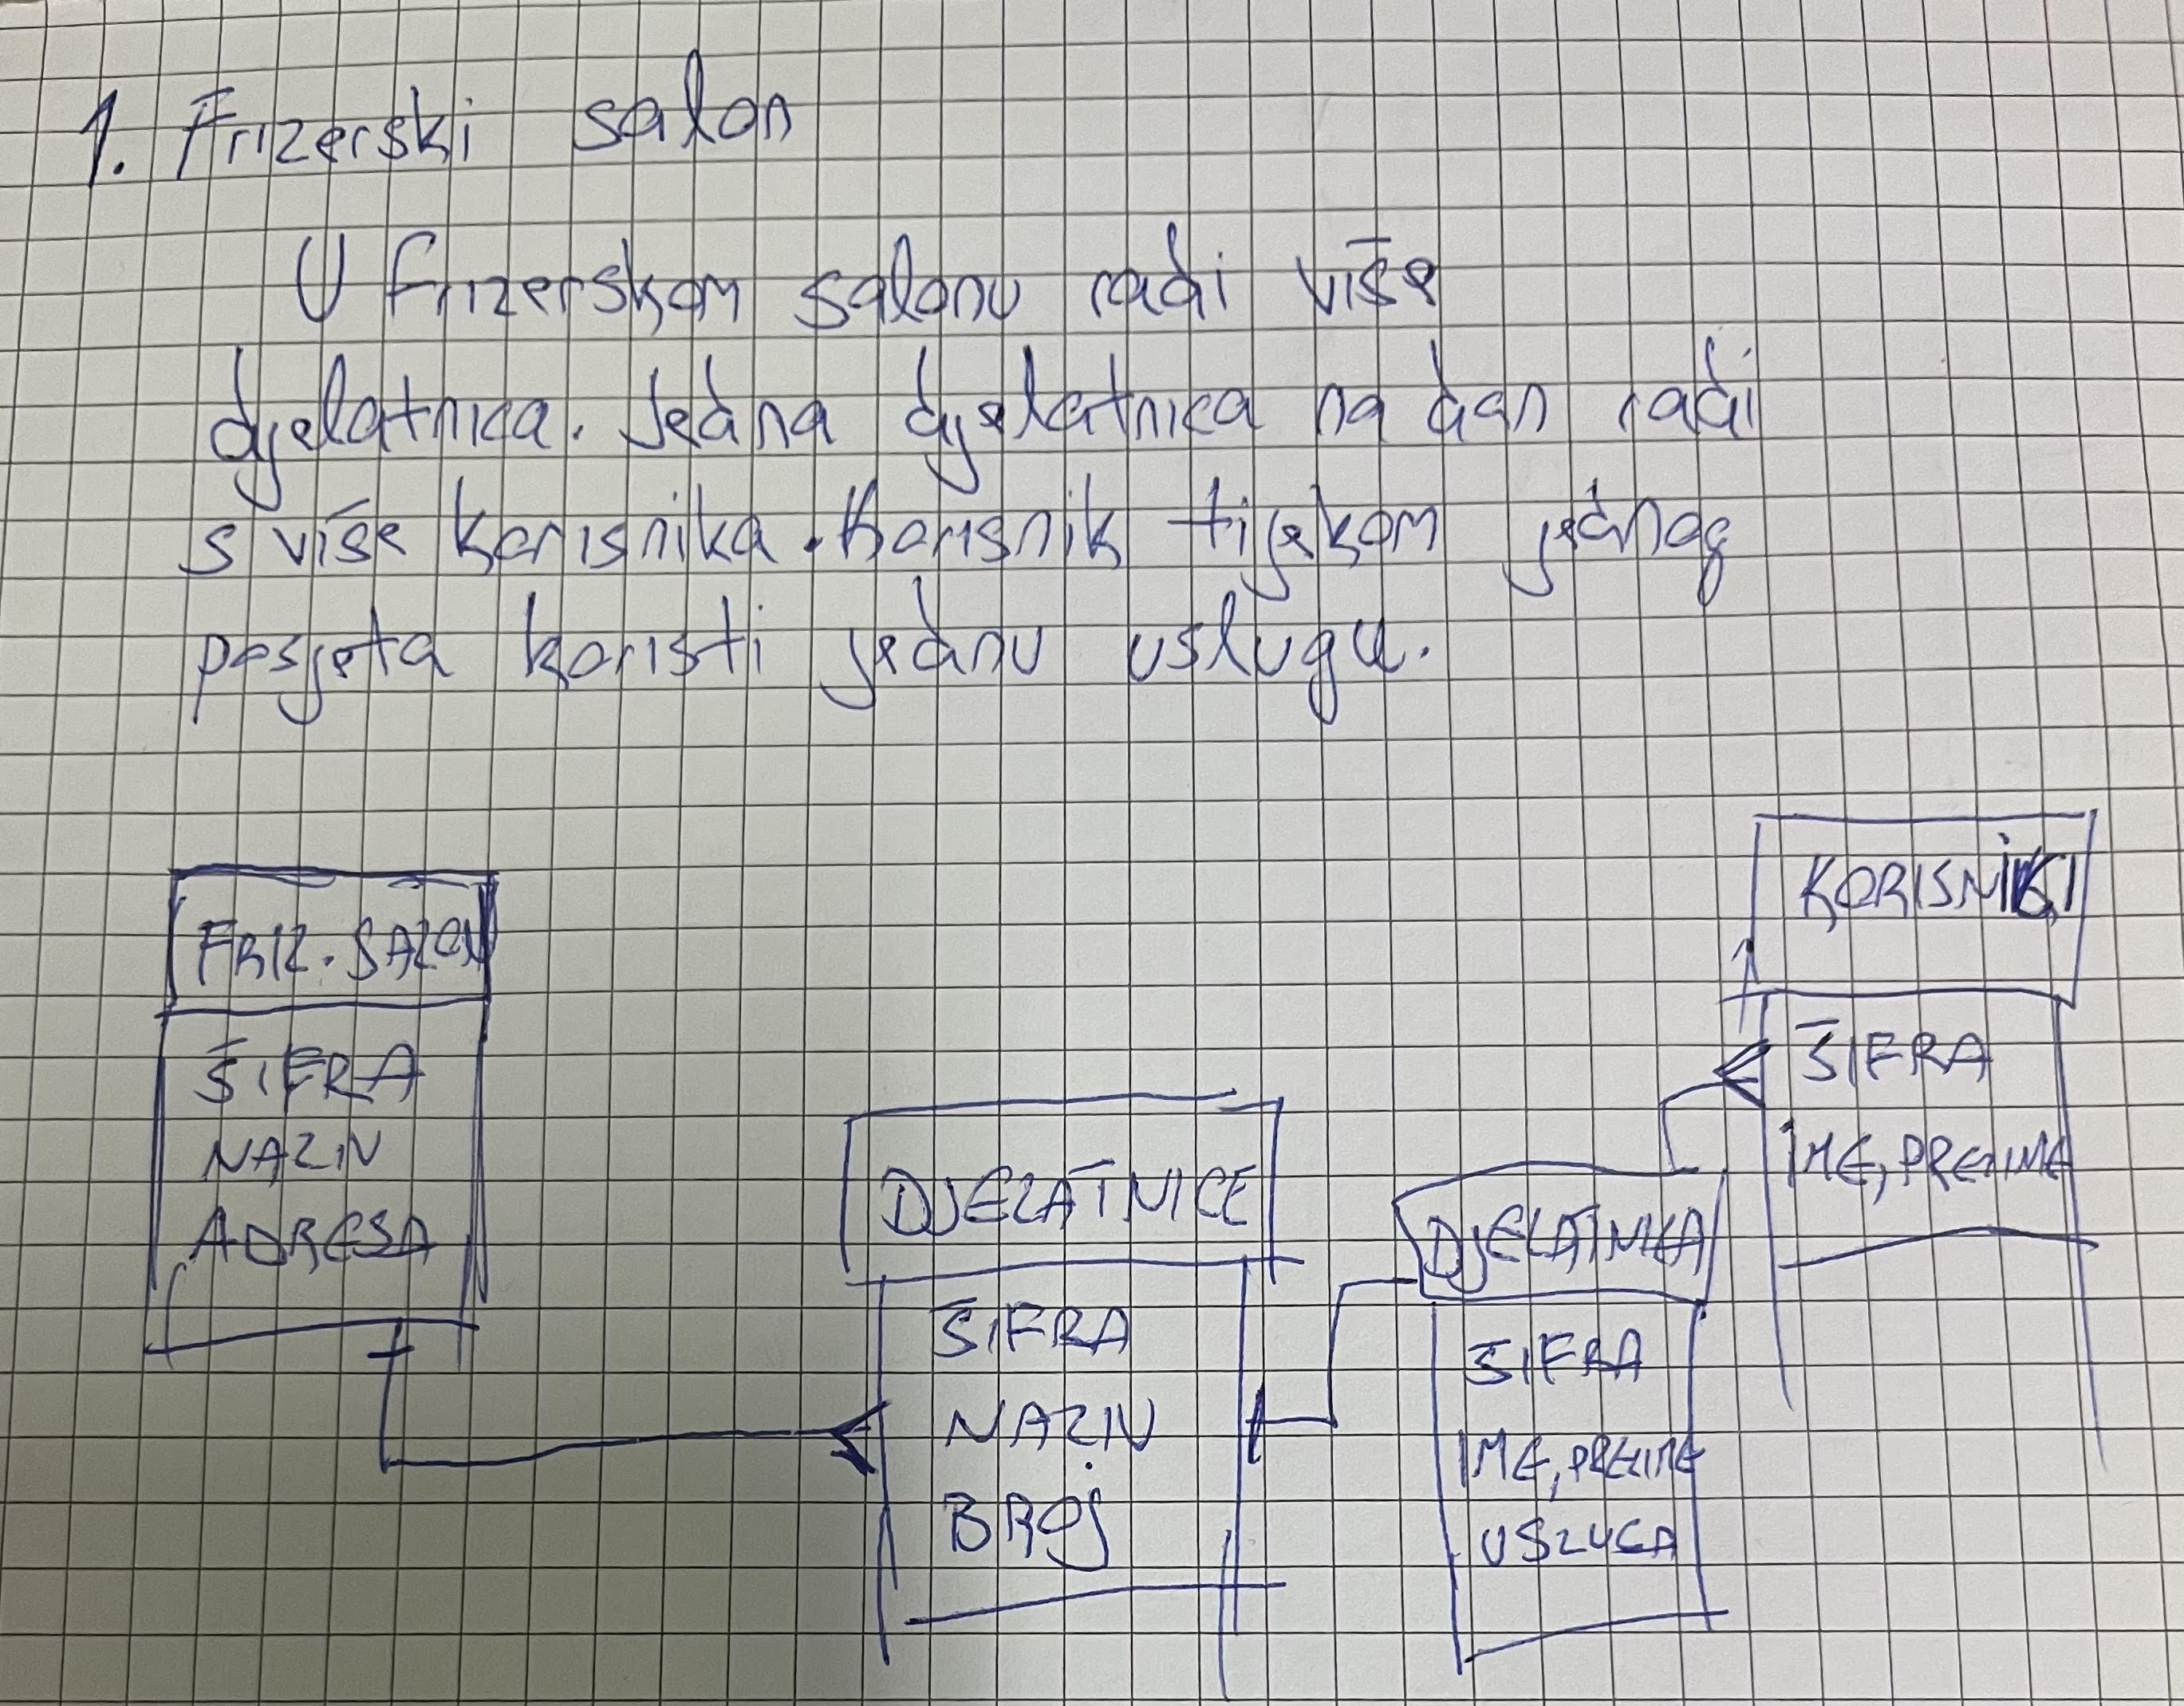 1. Frizerski salon
U frizerskom salonu radi više
djelatnica. Jedna djelatnica na dan radi
s više korisnika. Korisnik tijekom jednog
posjeta koristi jednu uslugu.
FRIZ. SALON
ŠIFRA
NAZIV
ADRESA
DJELATNICE
ŠIFRA
NAZIV
BROJ
DJELATNICA
ŠIFRA
IME, PREZIME
USLUGA
KORISNIKI
ŠIFRA
IME, PREZIME